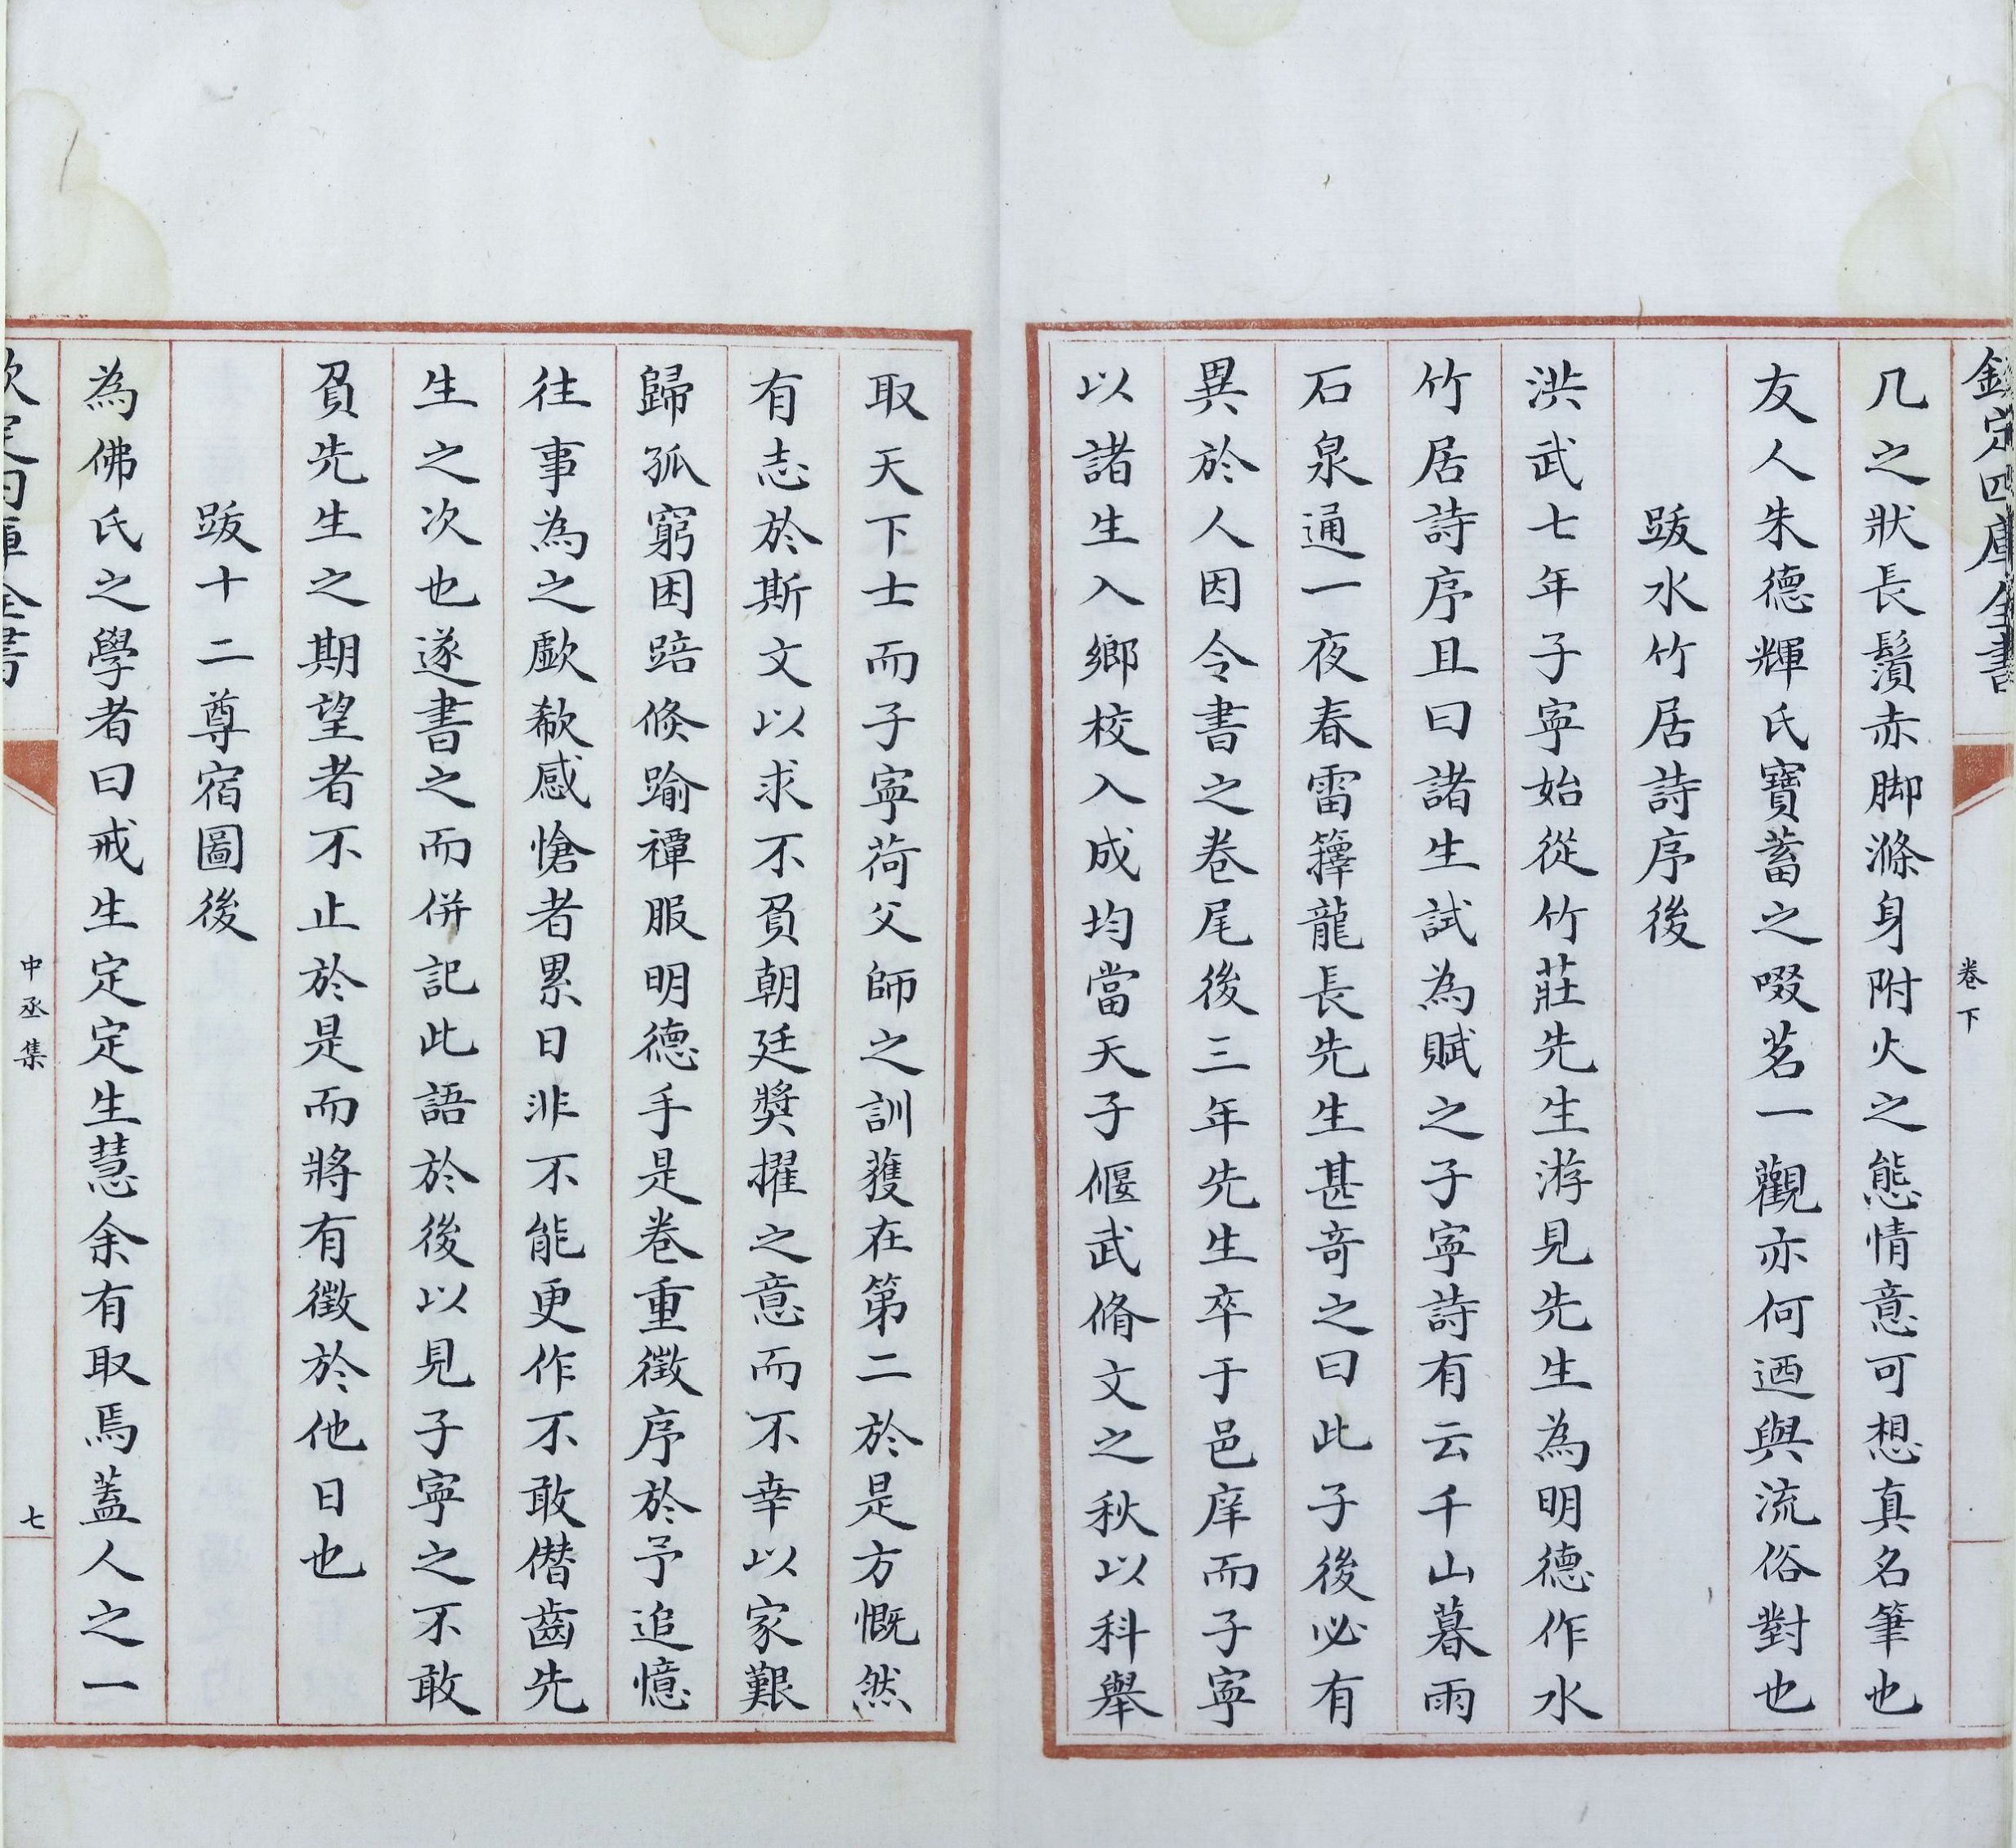 欽定四庫全書
卷下
几之狀長鬚赤脚滌身附火之態情意可想真名筆也
友人朱德輝氏寶蓄之啜茗一觀亦何迺與流俗對也
跋水竹居詩序後
洪武七年子寧始從竹莊先生游見先生為明德作水
竹居詩序且曰諸生試為賦之子寧詩有云千山暮雨
石泉通一夜春雷籜龍長先生甚奇之曰此子後必有
異於人因令書之卷尾後三年先生卒于邑庠而子寧
以諸生入鄉校入成均當天子偃武脩文之秋以科舉
取天下士而子寧荷父師之訓獲在第二於是方慨然
有志於斯文以求不負朝廷獎擢之意而不幸以家艱
歸孤窮困踣倐踰禫服明德手是卷重徵序於予追憶
往事為之歔欷感愴者累日非不能更作不敢僭齒先
生之次也遂書之而併記此語於後以見子寧之不敢
負先生之期望者不止於是而將有徵於他日也
跋十二尊宿圖後
為佛氏之學者曰戒生定定生慧余有取焉蓋人之一
欽定四庫全書
中丞集
七